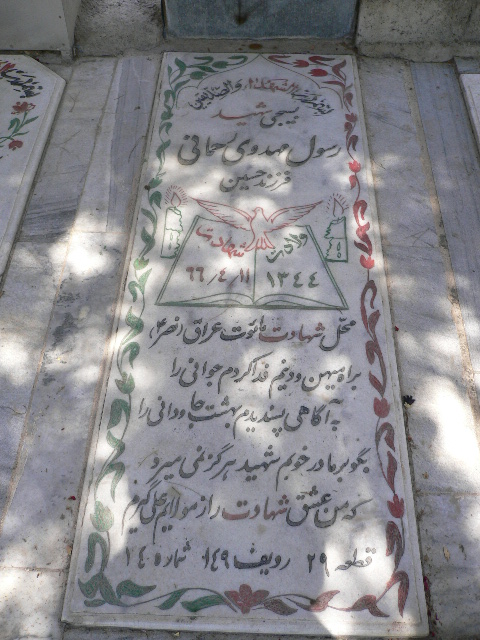 بسیجی شهید
رسول مهدوی سبحانی
فرزند حسین
ولادت
شهادت
۱۳۴۴
۶۶/۴/۱۱
محل شهادت مائوت عراق نصر ۴
براه میهن و دینم فدا کردم جوانی را
به آگاهی پسندیدم بهشت جاودانی را
بگو بر مادر خوبم شهید هرگز نمی میرد
که من عشق شهادت را ز مولایم علی گیرم
قطعه ۲۹ ردیف ۱۴۹ شماره ۱۴۰